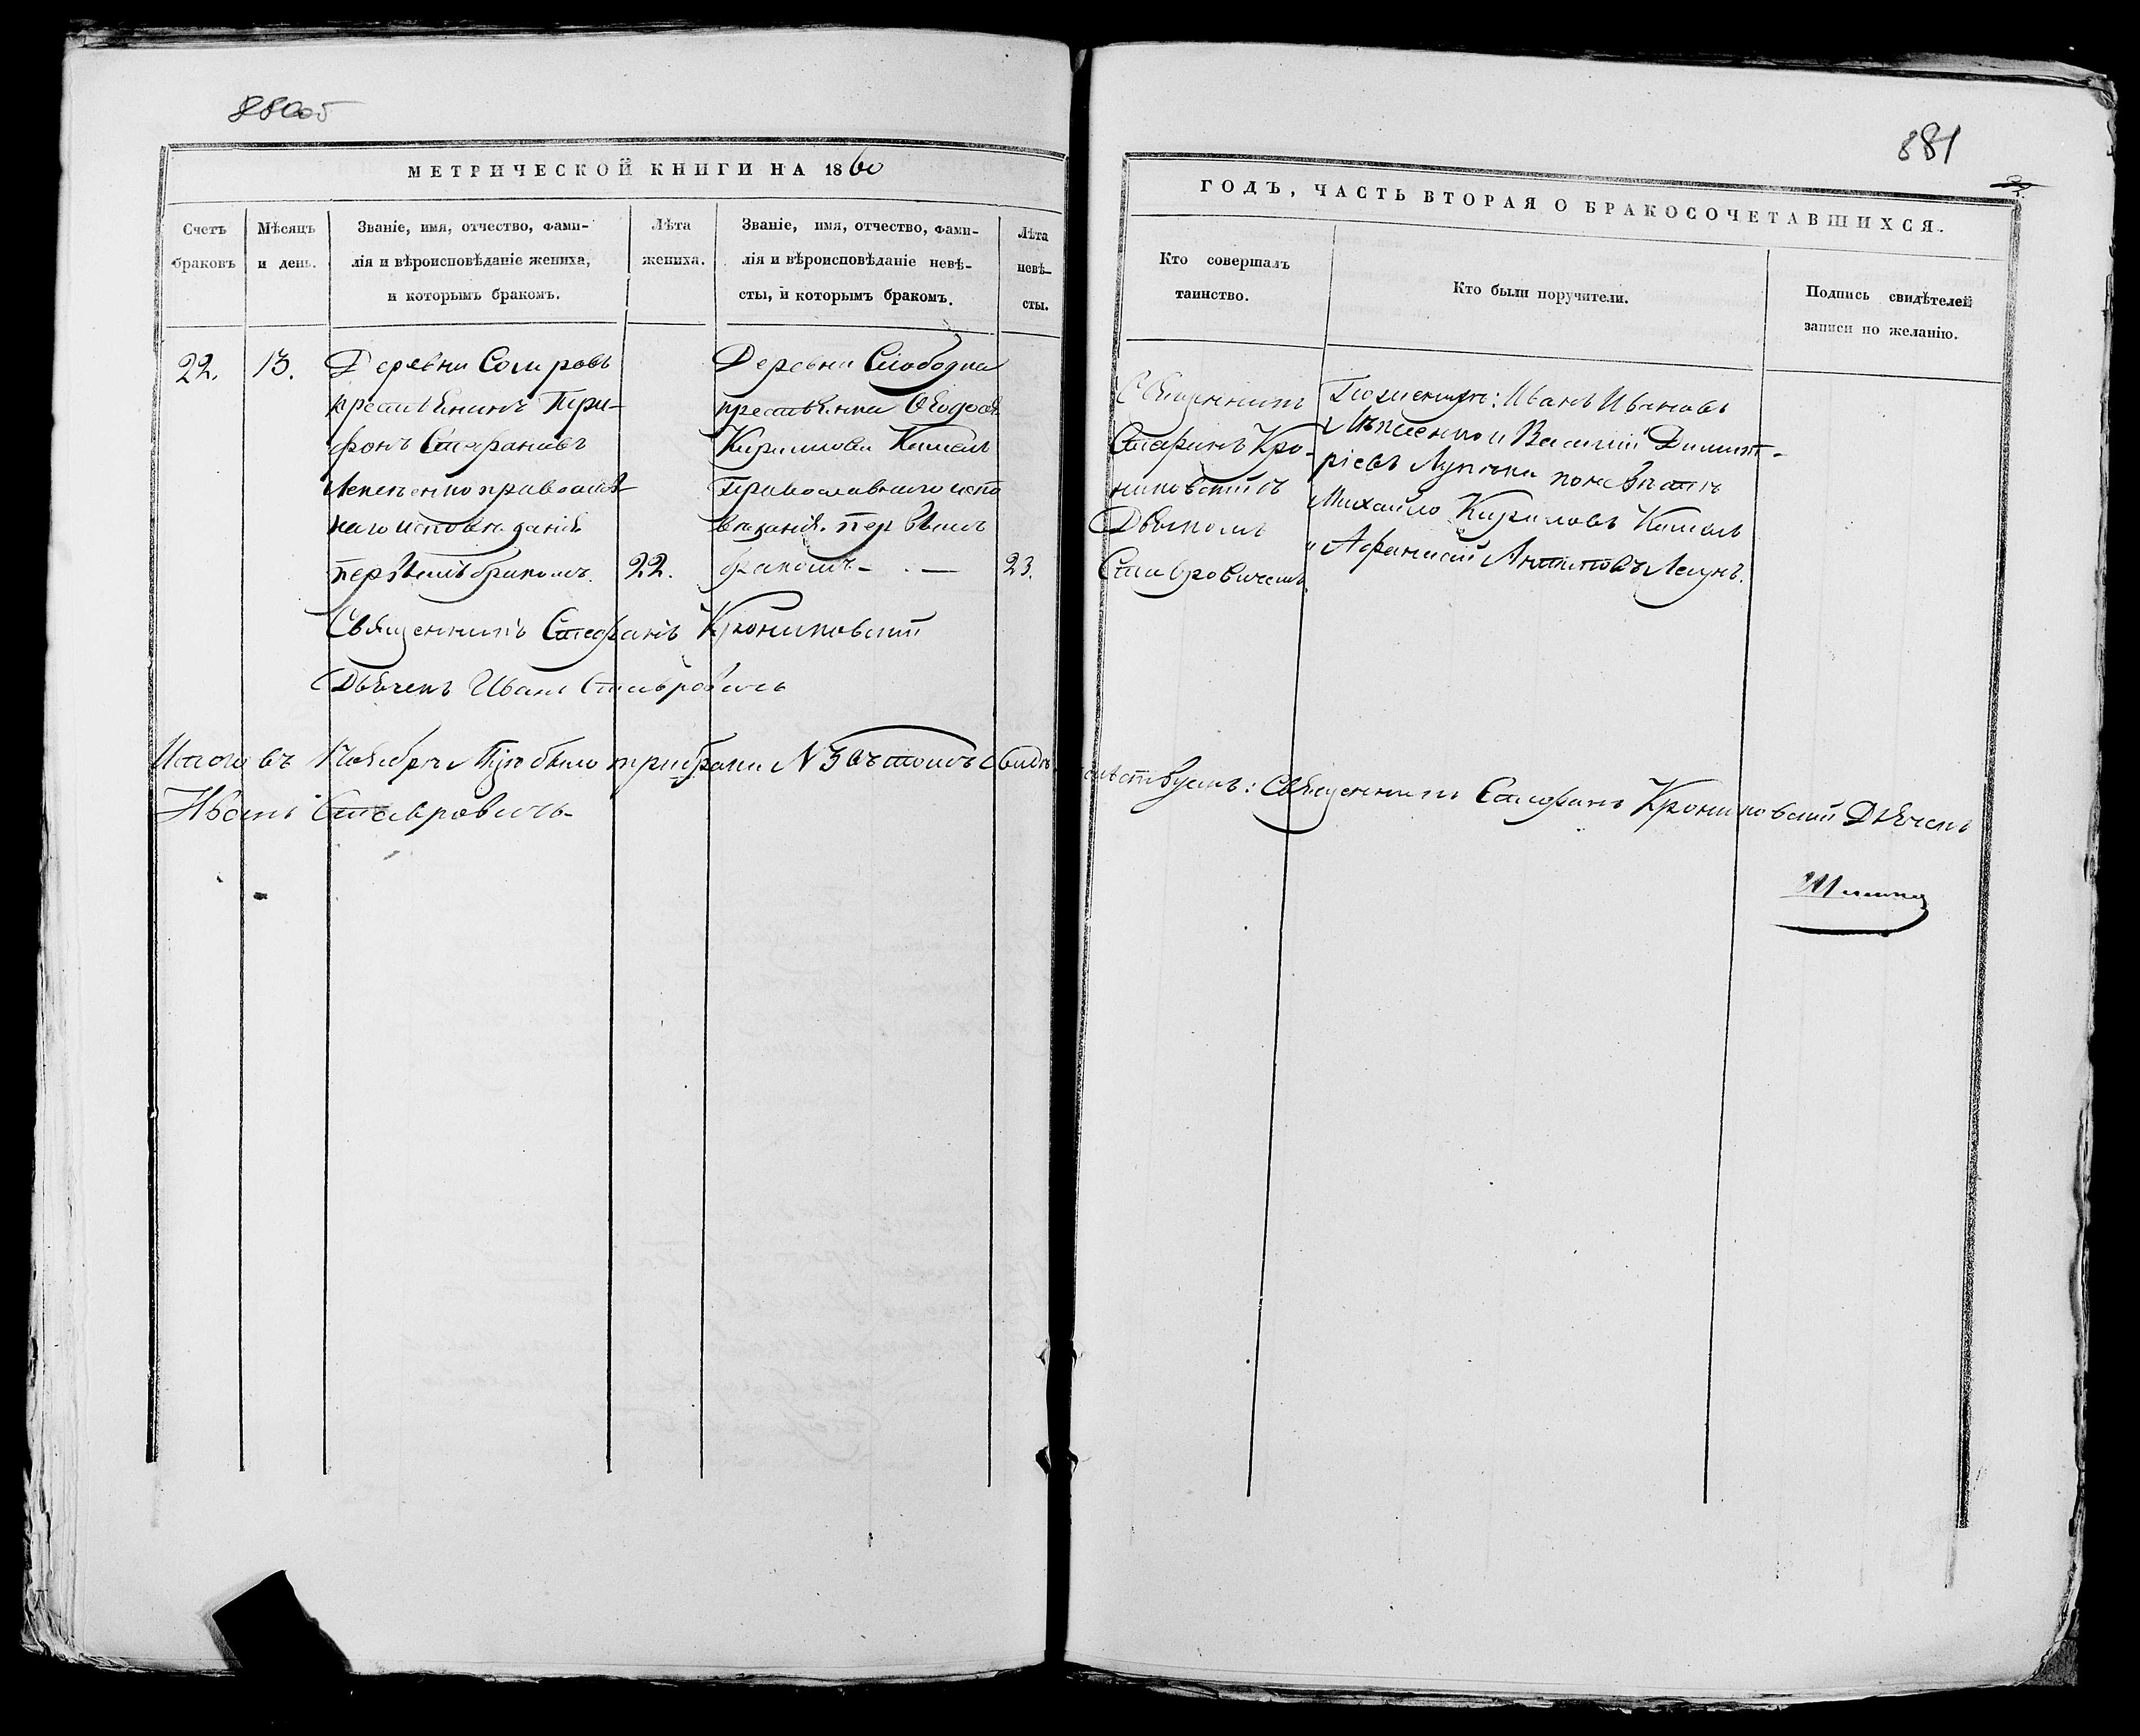 880об
МЕТРИЧЕСКОЙ КНИГИ НА 1860
Счетъ браковъ
Мѣсяцъ и день.
Званіе, имя, отчество, фами-
лія и вѣроисповѣданіе жениха,
и которымъ бракомъ.
Лѣта
жениха.
Званіе, имя, отчество, фами-
лія и вѣроисповѣданіе невѣ-
сты, и которымъ бракомъ.
Лѣта
невѣ-
сты.
22. 13.
Деревни
крестьянинъ Три-
фонъ Стефановъ
православ
наго исповѣданія
первымъ бракомъ. 22.
Деревни Слободки
крестьянка Ѳеодосія
Кирилова
Православнаго испо
вѣданія. первымъ
бракомъ 23.
Священникъ Стефанъ Крониковскій
Дьячекъ Иванъ Ставровичъ
Итого въ Ноябрѣ было три брака N 3 въ томъ свидѣ
Иванъ Ставровичъ
881
ГОДЪ, ЧАСТЬ ВТОРАЯ О БРАКОСОЧЕТАВШИХСЯ.
Кто совершалъ
таинство.
Кто были поручители.
Подпись свидѣтелей
записи по желанію.
Священникъ
Стефанъ Кро-
никовскій съ
Дьячкомъ
Ставровичемъ
По женихѣ: Иванъ Ивановъ
и Василій Димит-
ріевъ по невѣстѣ
Михайло Кириловъ
и Афанасій Антиповъ
тельствуемъ: Священникъ Стефанъ Крониковскій Дьячекъ